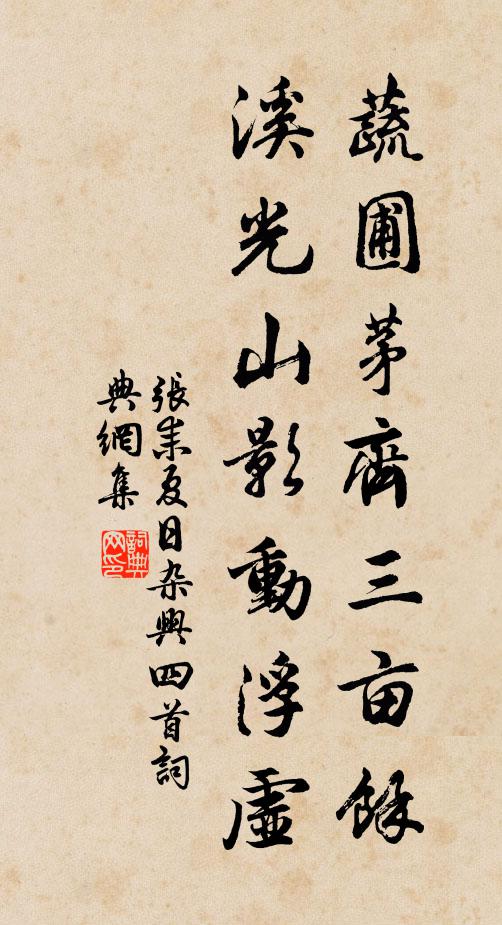 蔬圃茅齊三亩餘
溪光山影動浮虛
張耒夏日杂興四首詞
典網集
詞典网印